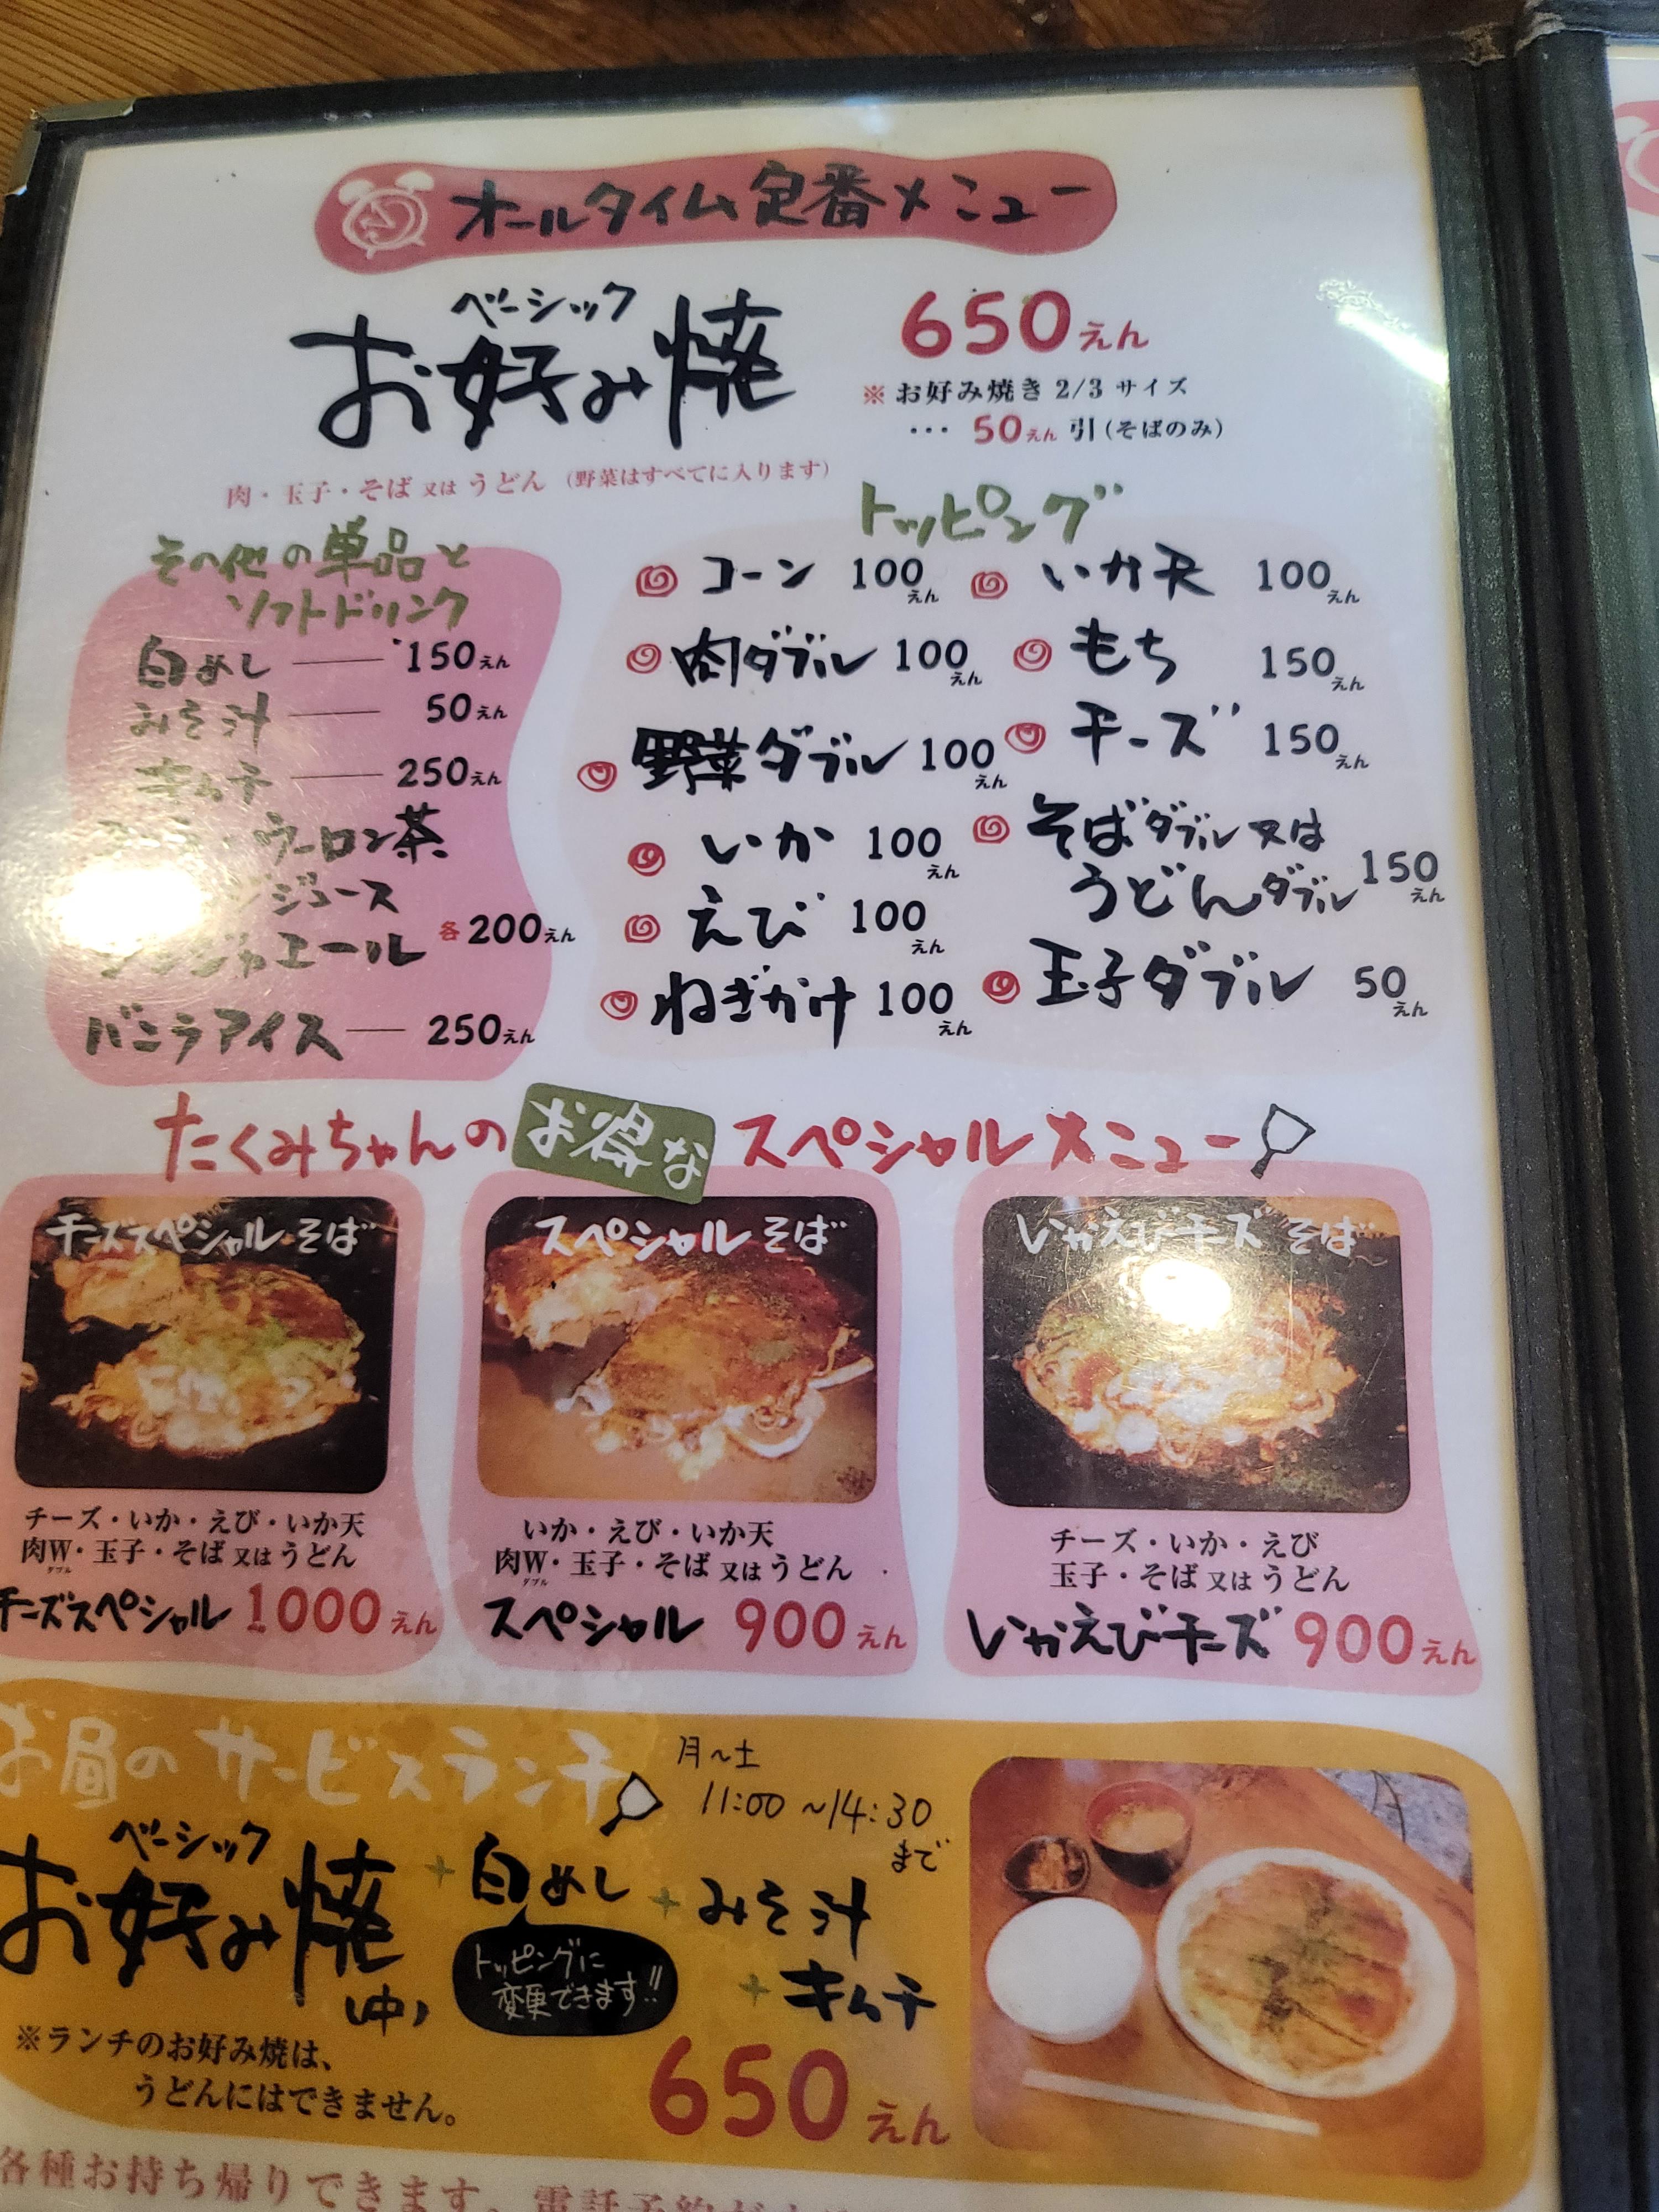 オールタイム定番メニュー
ベーシック
お好み焼 650えん
※お好み焼き 2/3 サイズ
… 50えん 引(そばのみ)
肉・玉子・そば又はうどん (野菜はすべてに入ります)
その他の単品と
ソフトドリンク
白めし 150えん
みそ汁 50えん
キムチ 250えん
ウーロン茶
ジュース
ジンジャエール
各200えん
バニラアイス 250えん
トッピング
コーン 100えん
肉ダブル 100えん
野菜ダブル 100えん
いか 100えん
えび 100えん
ねぎかけ 100えん
いか天 100えん
もち 150えん
チーズ 150えん
そばダブル又は
うどんダブル 150えん
玉子ダブル 50えん
たくみちゃんのお得なスペシャルメニュー
チーズスペシャルそば
チーズ・いか・えび・いか天
肉W・玉子・そば又はうどん
ダブル
チーズスペシャル 1000えん
スペシャルそば
いか・えび・いか天
肉W・玉子・そば又はうどん
ダブル
スペシャル 900えん
いかえびチーズそば
チーズ・いか・えび
玉子・そば又はうどん
いかえびチーズ 900えん
お昼のサービスランチ
月〜土
11:00〜14:30
まで
ベーシック
お好み焼(中)+白めし+みそ汁
+キムチ
トッピングに
変更できます!!
※ランチのお好み焼は、
うどんにはできません。
650えん
各種お持ち帰りできます。電話予約が